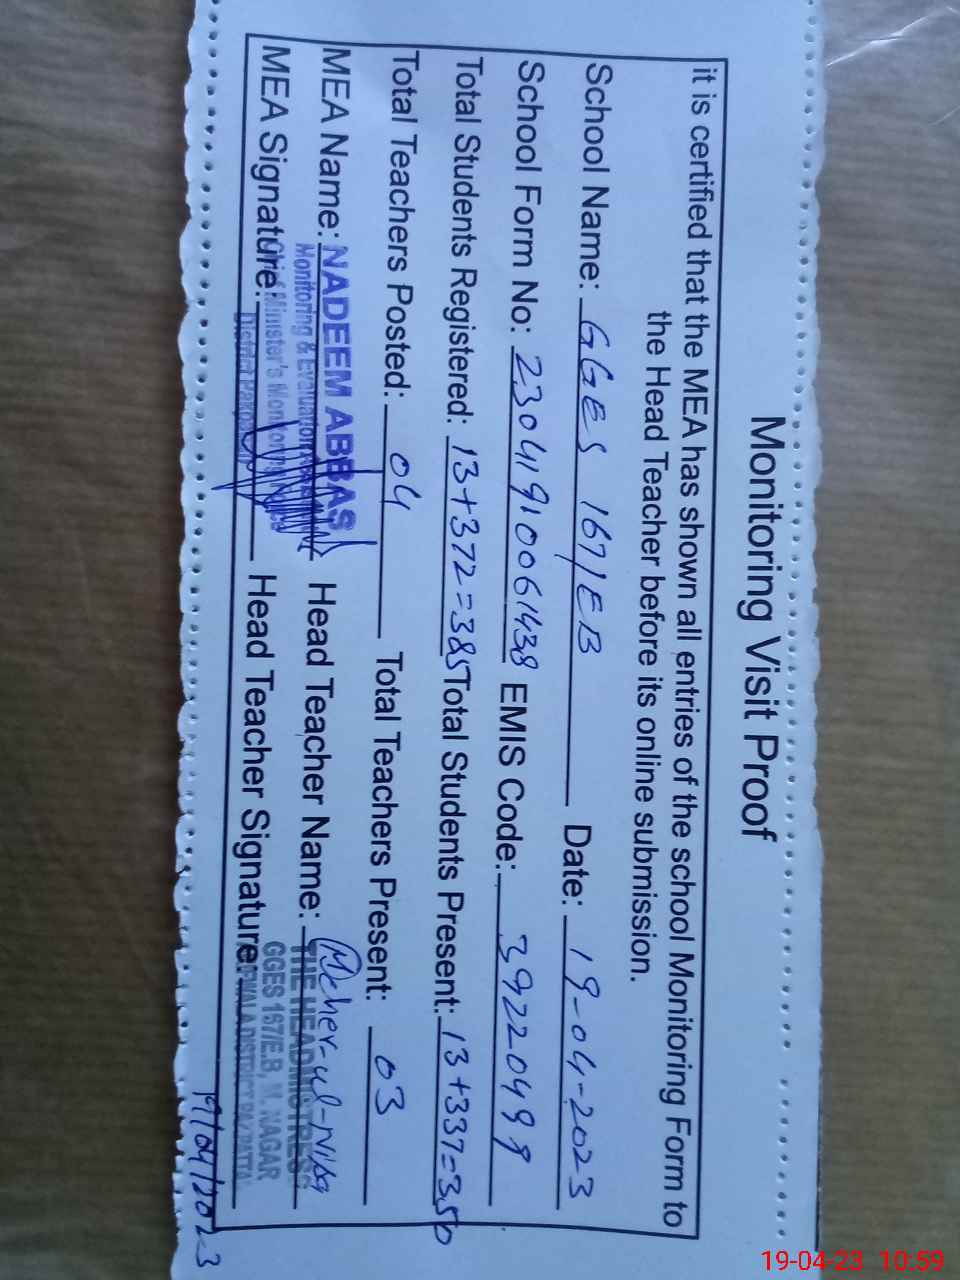 Monitoring Visit Proof
it is certified that the MEA has shown all entries of the school Monitoring Form to
the Head Teacher before its online submission.
School Name: GGES 167/EB Date: 19-04-2023
School Form No: 23041910061438 EMIS Code: 39220499
Total Students Registered: 13+372=385 Total Students Present: 13+337=350
Total Teachers Posted: 04 Total Teachers Present: 03
MEA Name: NADEEM ABBAS Head Teacher Name: Meher-ul-Nisa
Monitoring & Evaluation
THE HEADMISTRESS
MEA Signature: Head Teacher Signature:
Chief Minister's Monitoring
GGES 167/E.B, M. NAGAR
District Pakpattan
DISTRICT PAKPATTAN
19/04/2023
19-04-23 10:59